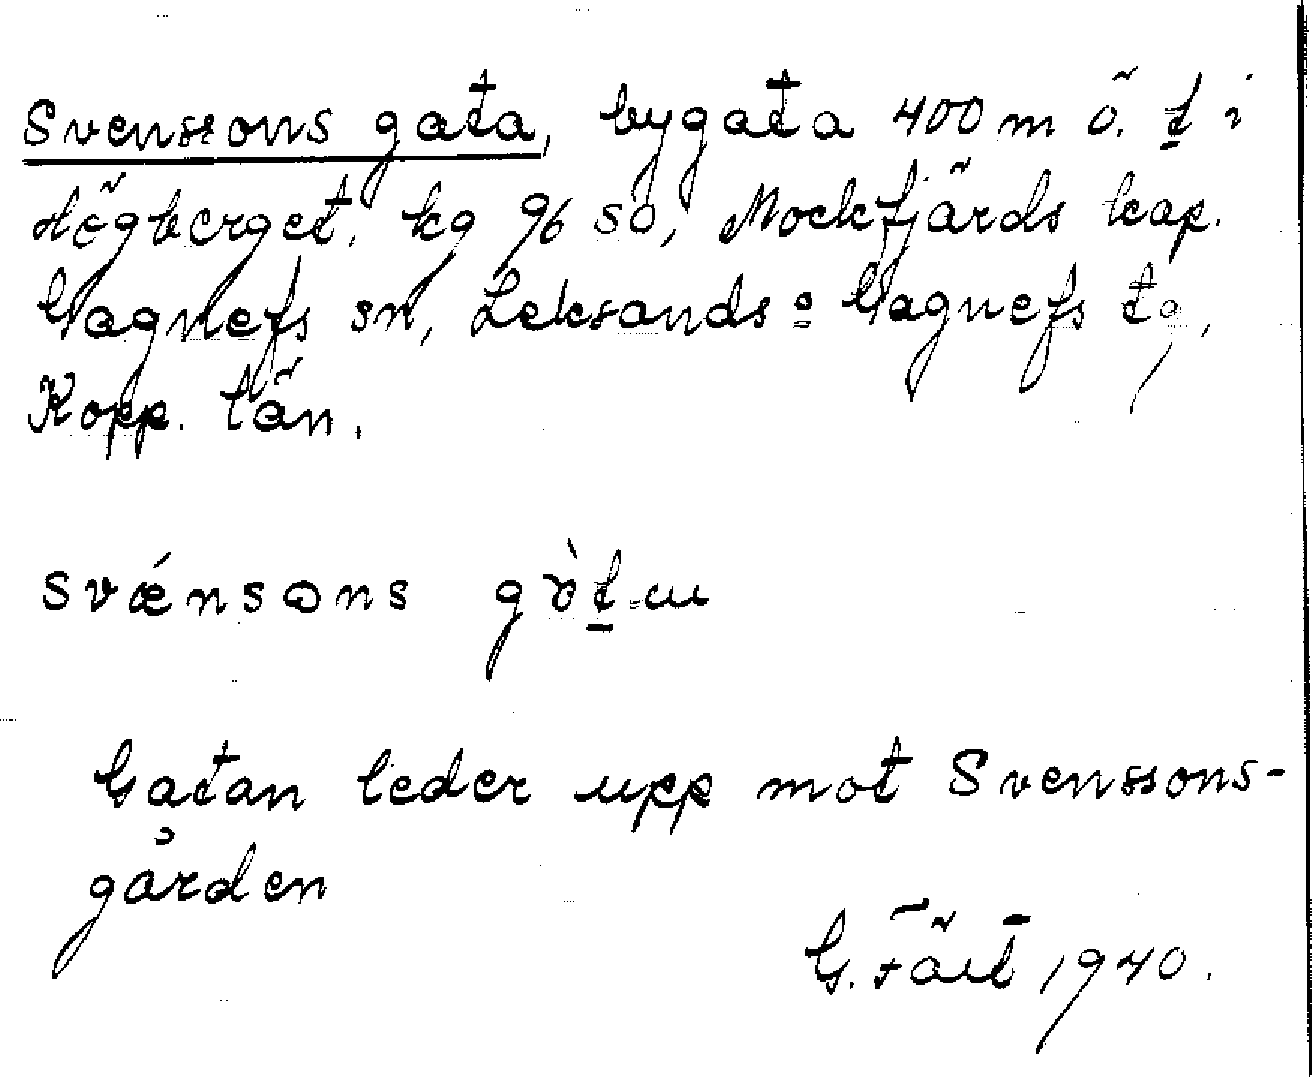 Svenssons gata, bygata 400 m ö. t i
Högberget, kg 96 SO, Mockfjärds kap.
Gagnefs sn, Leksands o Gagnefs tg,
Kopp. län.
svǽnsons gɒ̀t-ɯ
Gatan leder upp mot Svenssons-
gården
G. 1940.